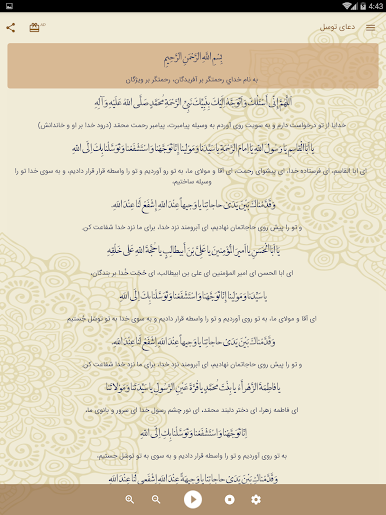 4:43
دعای توسل
AD
بِسْمِ اللَّهِ الرَّحْمَنِ الرَّحِيمِ
به نام خدای رحمتگر بر آفریدگان، رحمتگر بر ویژگان
اَللّهُمَّ اِنّی اَسْئَلُکَ وَ اَتَوَجَّهُ اِلَیْکَ بِنَبِیِّکَ نَبِیِّ الرَّحْمَةِ مُحَمَّدٍ صَلَّی اللهُ عَلَیْهِ وَ آلِهِ
خدایا از تو درخواست دارم و به سویت روی آوردم به وسیله پیامبرت، پیامبر رحمت محمّد (درود خدا بر او و خاندانش)
یا اَبَاالْقاسِمِ یا رَسُولَ اللهِ یا اِمامَ الرَّحْمَةِ یا سَیِّدَنا وَ مَوْلینا اِنّا تَوَجَّهْنا وَ اسْتَشْفَعْنا وَ تَوَسَّلْنا بِکَ اِلَی اللهِ
ای ابا القاسم، ای فرستاده خدا، ای پیشوای رحمت، ای آقا و مولای ما، به تو رو آوردیم و تو را واسطه قرار دادیم، و به سوی خدا تو را
وسیله ساختیم،
وَ قَدَّمْناکَ بَیْنَ یَدَیْ حاجاتِنا یا وَجیهاً عِنْدَ اللهِ اِشْفَعْ لَنا عِنْدَ اللهِ
و تو را پیش روی حاجاتمان نهادیم، ای آبرومند نزد خدا، برای ما نزد خدا شفاعت کن
یا اَبَا الْحَسَنِ یا اَمیرَ الْمُؤْمِنینَ یا عَلِیَّ بْنَ اَبیطالِبٍ یا حُجَّةَ اللهِ عَلی خَلْقِهِ
ای ابا الحسن ای امیر المؤمنین ای علی بن ابیطالب، ای حجّت خُدا بر بندگان،
یا سَیِّدَنا وَ مَوْلینا اِنّا تَوَجَّهْنا وَ اسْتَشْفَعْنا وَ تَوَسَّلْنا بِکَ اِلَی اللهِ
ای آقا و مولای ما، به تو روی آوردیم و تو را واسطه قرار دادیم و به سوی خدا به تو توسّل جُستیم
وَ قَدَّمْناکَ بَیْنَ یَدَیْ حاجاتِنا یا وَجیهاً عِنْدَ اللهِ اِشْفَعْ لَنا عِنْدَ اللهِ
و تو را پیش روی حاجاتمان نهادیم، ای آبرومند نزد خدا، برای ما نزد خدا شفاعت کن
یا فاطِمَةُ الزَّهْراَّءُ یا بِنْتَ مُحَمَّدٍ یا قُرَّةَ عَیْنِ الرَّسُولِ یا سَیِّدَتَنا وَ مَوْلاتَنا
ای فاطمه زهرا، ای دختر دلبند محمّد، ای نور چشم رسول خدا ای سرور و بانوی ما،
اِنّا تَوَجَّهْنا وَ اسْتَشْفَعْنا وَ تَوَسَّلْنا بِکِ اِلَی اللهِ
به تو روی آوردیم و تو را واسطه قرار دادیم و به سوی خدا به تو توسّل جستیم،
وَ قَدَّمْناکِ بَیْنَ یَدَیْ حاجاتِنا یا وَجیهَةً عِنْدَ اللهِ اِشْفَعی لَنا عِنْدَ اللهِ